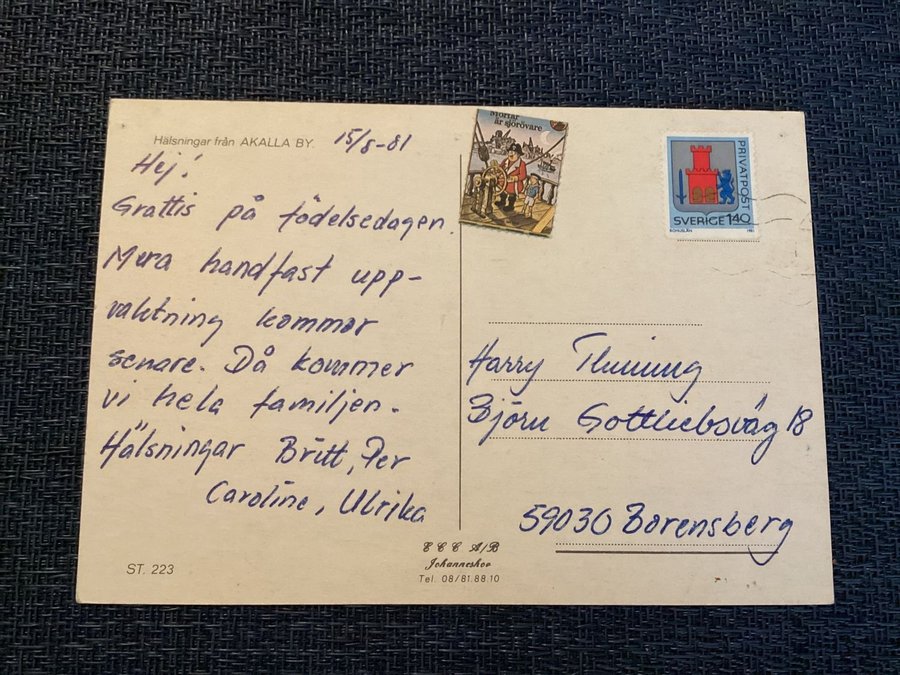 Hälsningar från AKALLA BY. 15/8-81
Hej!
Grattis på födelsedagen.
Mera handfast upp-
vaktning kommer
senare. Då kommer
vi hela familjen.
Hälsningar Britt, Per
Caroline, Ulrika
ST. 223
E C C A/B
Johanneshov
Tel. 08/81.88.10
Morfar
är sjörövare
PRIVATPOST
SVERIGE 140
BOHUSLÄN 1981
Harry
Björn Gottliebsväg 18
59030 Borensberg